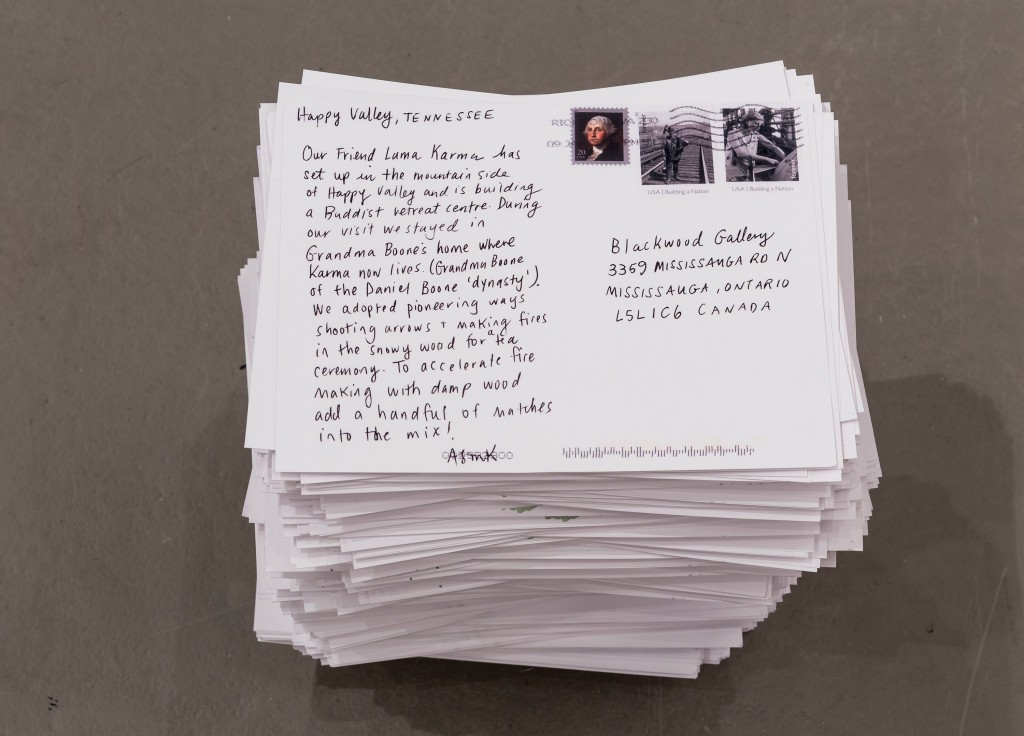 Happy Valley, TENNESSEE
Our Friend Lama Karma has
set up in the mountain side
of Happy Valley and is building
a Buddist retreat centre. During
our visit we stayed in
Grandma Boone's home where
Karma now lives. (Grandma Boone
of the Daniel Boone 'dynasty').
We adopted pioneering ways
shooting arrows + making fires
in the snowy wood for a tea
ceremony. To accelerate fire
making with damp wood
add a handful of matches
into the mix!
29
USA | Building a Nation
USA | Building a Nation
Blackwood Gallery
3359 MISSISSAUGA RD N
MISSISSAUGA, ONTARIO
L5L1C6 CANADA